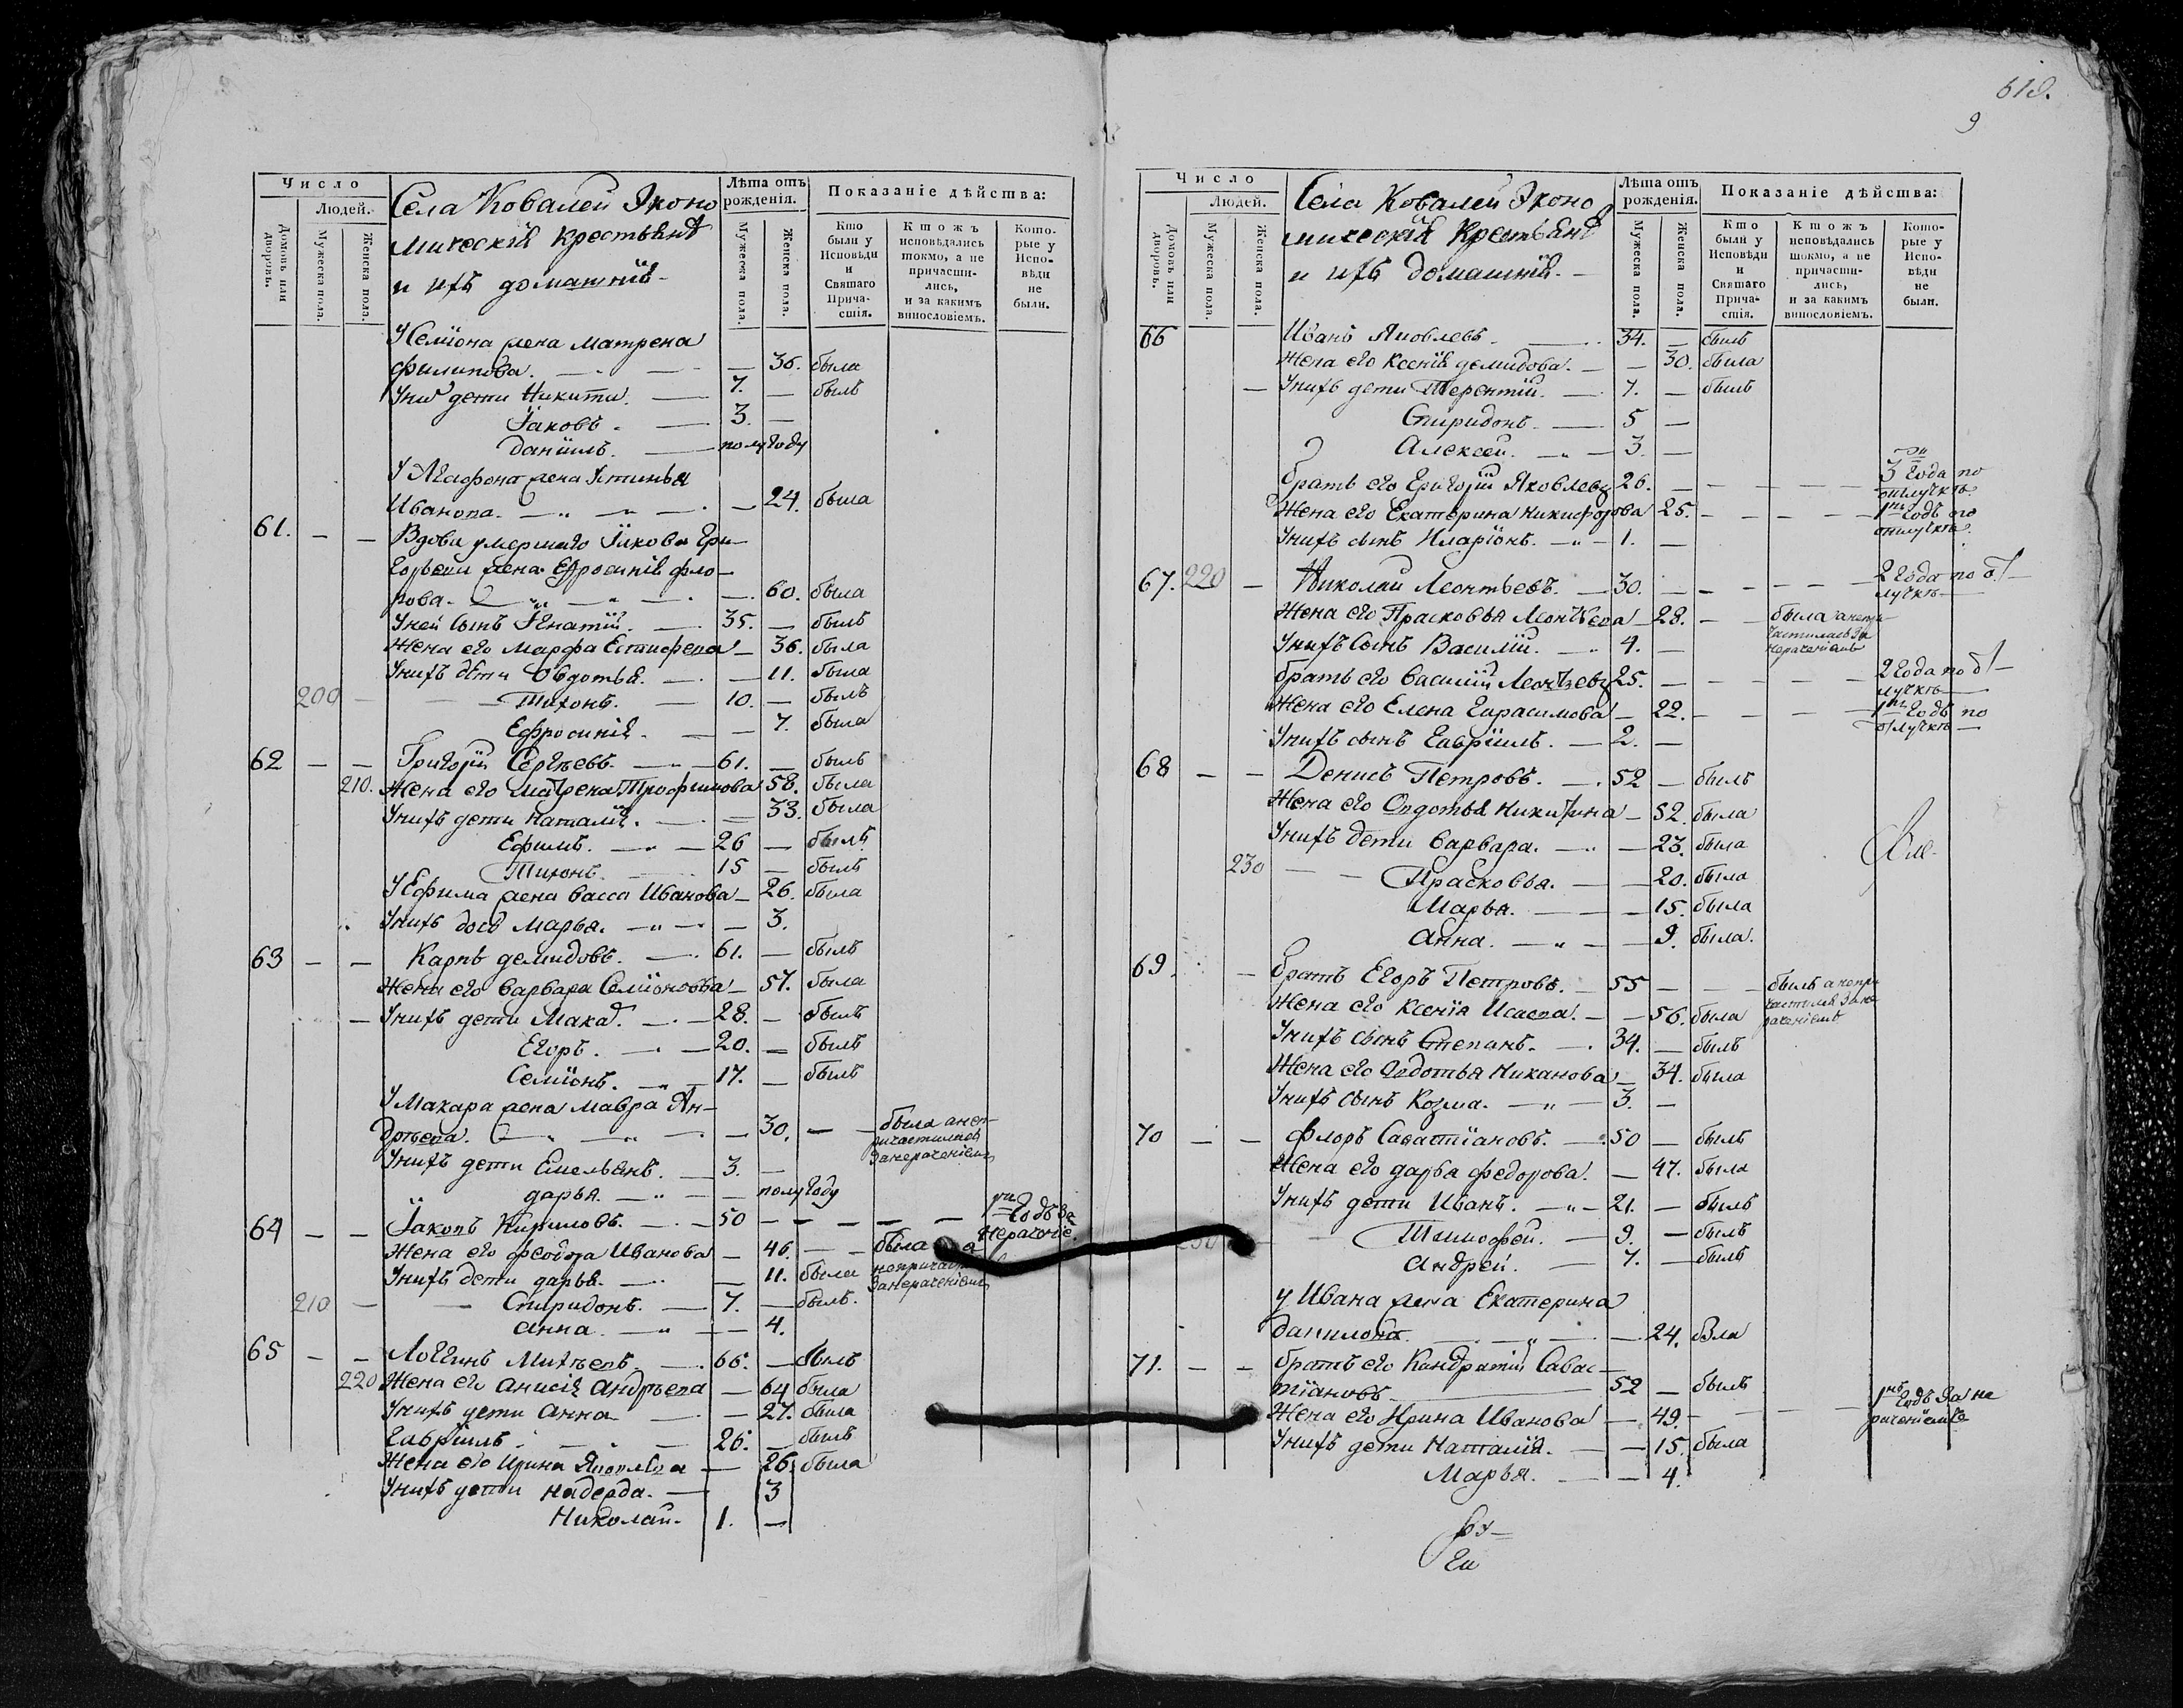 Число
Людей.
Домовъ или дворовъ.
Мужеска пола.
Женска пола.
Села Ковалей Эконо
мическiя крестьянѣ
и ихъ домашнiя
Лѣта отъ рожденiя.
Мужеска пола.
Женска пола.
Показанiе дѣйства:
Кто были у Исповѣди и Святаго Причастiя.
Ктожъ исповѣдались токмо, а не причастились, и за какимъ винословiемъ.
Которые у Исповѣди не были.
У Семiона жена Матрена
Филипова. — 36. была
Унихъ дети Никита. 7. — былъ
Iаковъ. 3. —
Данiилъ. полугоду
У Агафона жена Устинья
Иванова. — 24. была
61. — — Вдова умершаго Iякова Гри
горьева жена Ефросинiя Фло
рова. — 60. была
Уней сынъ Игнатiй. 35. — былъ
Жена его Марфа Естифева — 36. была
Унихъ дети Овдотья. — 11. была
200 — Тихонъ. 10. — былъ
Ефросинiя. — 7. была
62 — — Григорiй Сергѣевъ. 61. — былъ
210. Жена его Матрена Трофимова 58. была
Унихъ дети Наталiя. — 33. была
Ефимъ. 26 — былъ
Тихонъ. 15 — былъ
У Ефима жена Васса Иванова — 26. была
Унихъ дочь Марья. — 3.
63 — — Карпъ Демидовъ. 61. — былъ
Жена его Варвара Семiоновва — 57. была
— Унихъ дети Мака. 28. — былъ
Егоръ. 20. — былъ
Семiонъ. 17. — былъ
У Макара жена Мавра Ан
дрѣева. — 30. — была анеп
ричастилась
занераченiемъ
Унихъ дети Емельянъ. 3. —
Дарья. — полугоду
64 — — Iаковъ Кириловъ. 50 — — — — 1й годъ за
нераченiе.
Жена его Феодора Иванова — 46. — была а
Унихъ дети Дарья. — 11. была
занераченiемъ
210 — Спиридонъ. 7. — былъ.
Анна. — 4.
65 — — Логгинъ Михѣевъ. 66. — былъ
220 Жена его Анисiя Андрѣева — 64 была
Унихъ дети Анна — 27. была
Гаврiилъ. 26. — былъ
Жена его Ирина Яковлева — 26. была
Унихъ дети Надежда. — 3
Николай. 1. —
618.
9
Число
Людей.
Домовъ или дворовъ.
Мужеска пола.
Женска пола.
Села Ковалей Эконо
мическiя Крестьянѣ
и ихъ домашнiя.
Лѣта отъ рожденiя.
Мужеска пола.
Женска пола.
Показанiе дѣйства:
Кто были у Исповѣди и Святаго Причастiя.
Ктожъ исповѣдались токмо, а не причастились, и за какимъ винословiемъ.
Которые у Исповѣди не были.
66 Иванъ Яковлевъ. 34. — былъ
Жена его Ксенiя Демидова. — 30. была
— Унихъ дети Терентiй. 7. — былъ
Спиридонъ. 5 —
Алексей. 3. —
Братъ его Григорiй Яковлевъ 26. — — — — 3 года по
отлучкѣ.
Жена его Екатерина Никифорова 25. — — — — 1й годъ по
отлучкѣ.
Унихъ сынъ Иларiонъ. 1. —
67. 220 — Николай Леонтьевъ. 30. — — — — 2 года по от
лучкѣ
Жена его Прасковья 28. — — была анепри
частилась за
нераченiемъ
Унихъ сынъ Василiй. 4. —
Братъ его Василiй Леонтьевъ 25. — — — — 2 года по от
лучкѣ
Жена его Елена Гарасимова — 22. — — — 1й годъ по
отлучкѣ
Унихъ сынъ Гаврiилъ. 2. —
68 — — Денисъ Петровъ. 52 — былъ
Жена его Овдотья Никитина — 52. была
Унихъ дети Варвара. — 23. была
230 — — Прасковья. — 20. была
Марья. — 15. была
Анна. — 9. была.
69. — Братъ Егоръ Петровъ. 55 — — былъ анепри
частился зане
раченiемъ
Жена его Ксенiя Исаева. — 56. была
Унихъ сынъ Степанъ. 34. — былъ
Жена его Авдотья Никанова — 34. была
Унихъ сынъ Козма. 3. —
70 — — Флоръ Савастiановъ. 50 — былъ
Жена его Дарья Федорова. — 47. была
Унихъ дети Иванъ. 21. — былъ
Тимофей. 9. — былъ
Андрей. 7. — былъ
У Ивана жена Екатерина
Данилова. — 24. была
71. — — Братъ его Кандратiй Савас
тiановъ 52 — былъ
Жена его Ирина Иванова — 49. — — — 1й годъ за не
раченiемъ
Унихъ дети Наталiя. — 15. была
Марья. — 4.